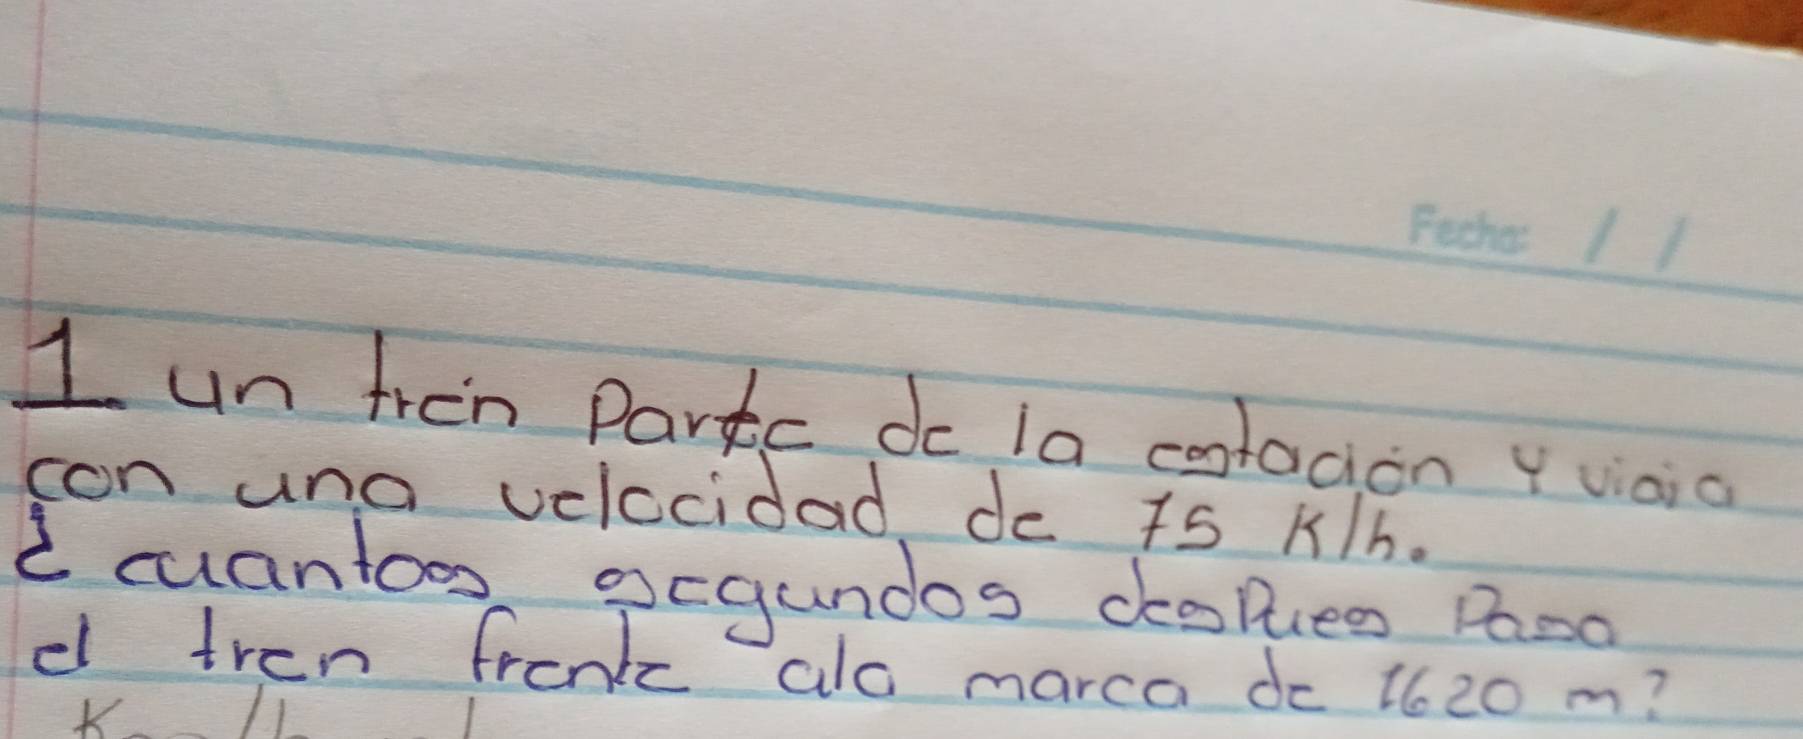 Fecha: / /
1. un tren Parte de la estación y viaja
con una velocidad de 75 K/h.
¿ cuantos segundos despues Pasa
el tren frente ala marca de 1620 m?